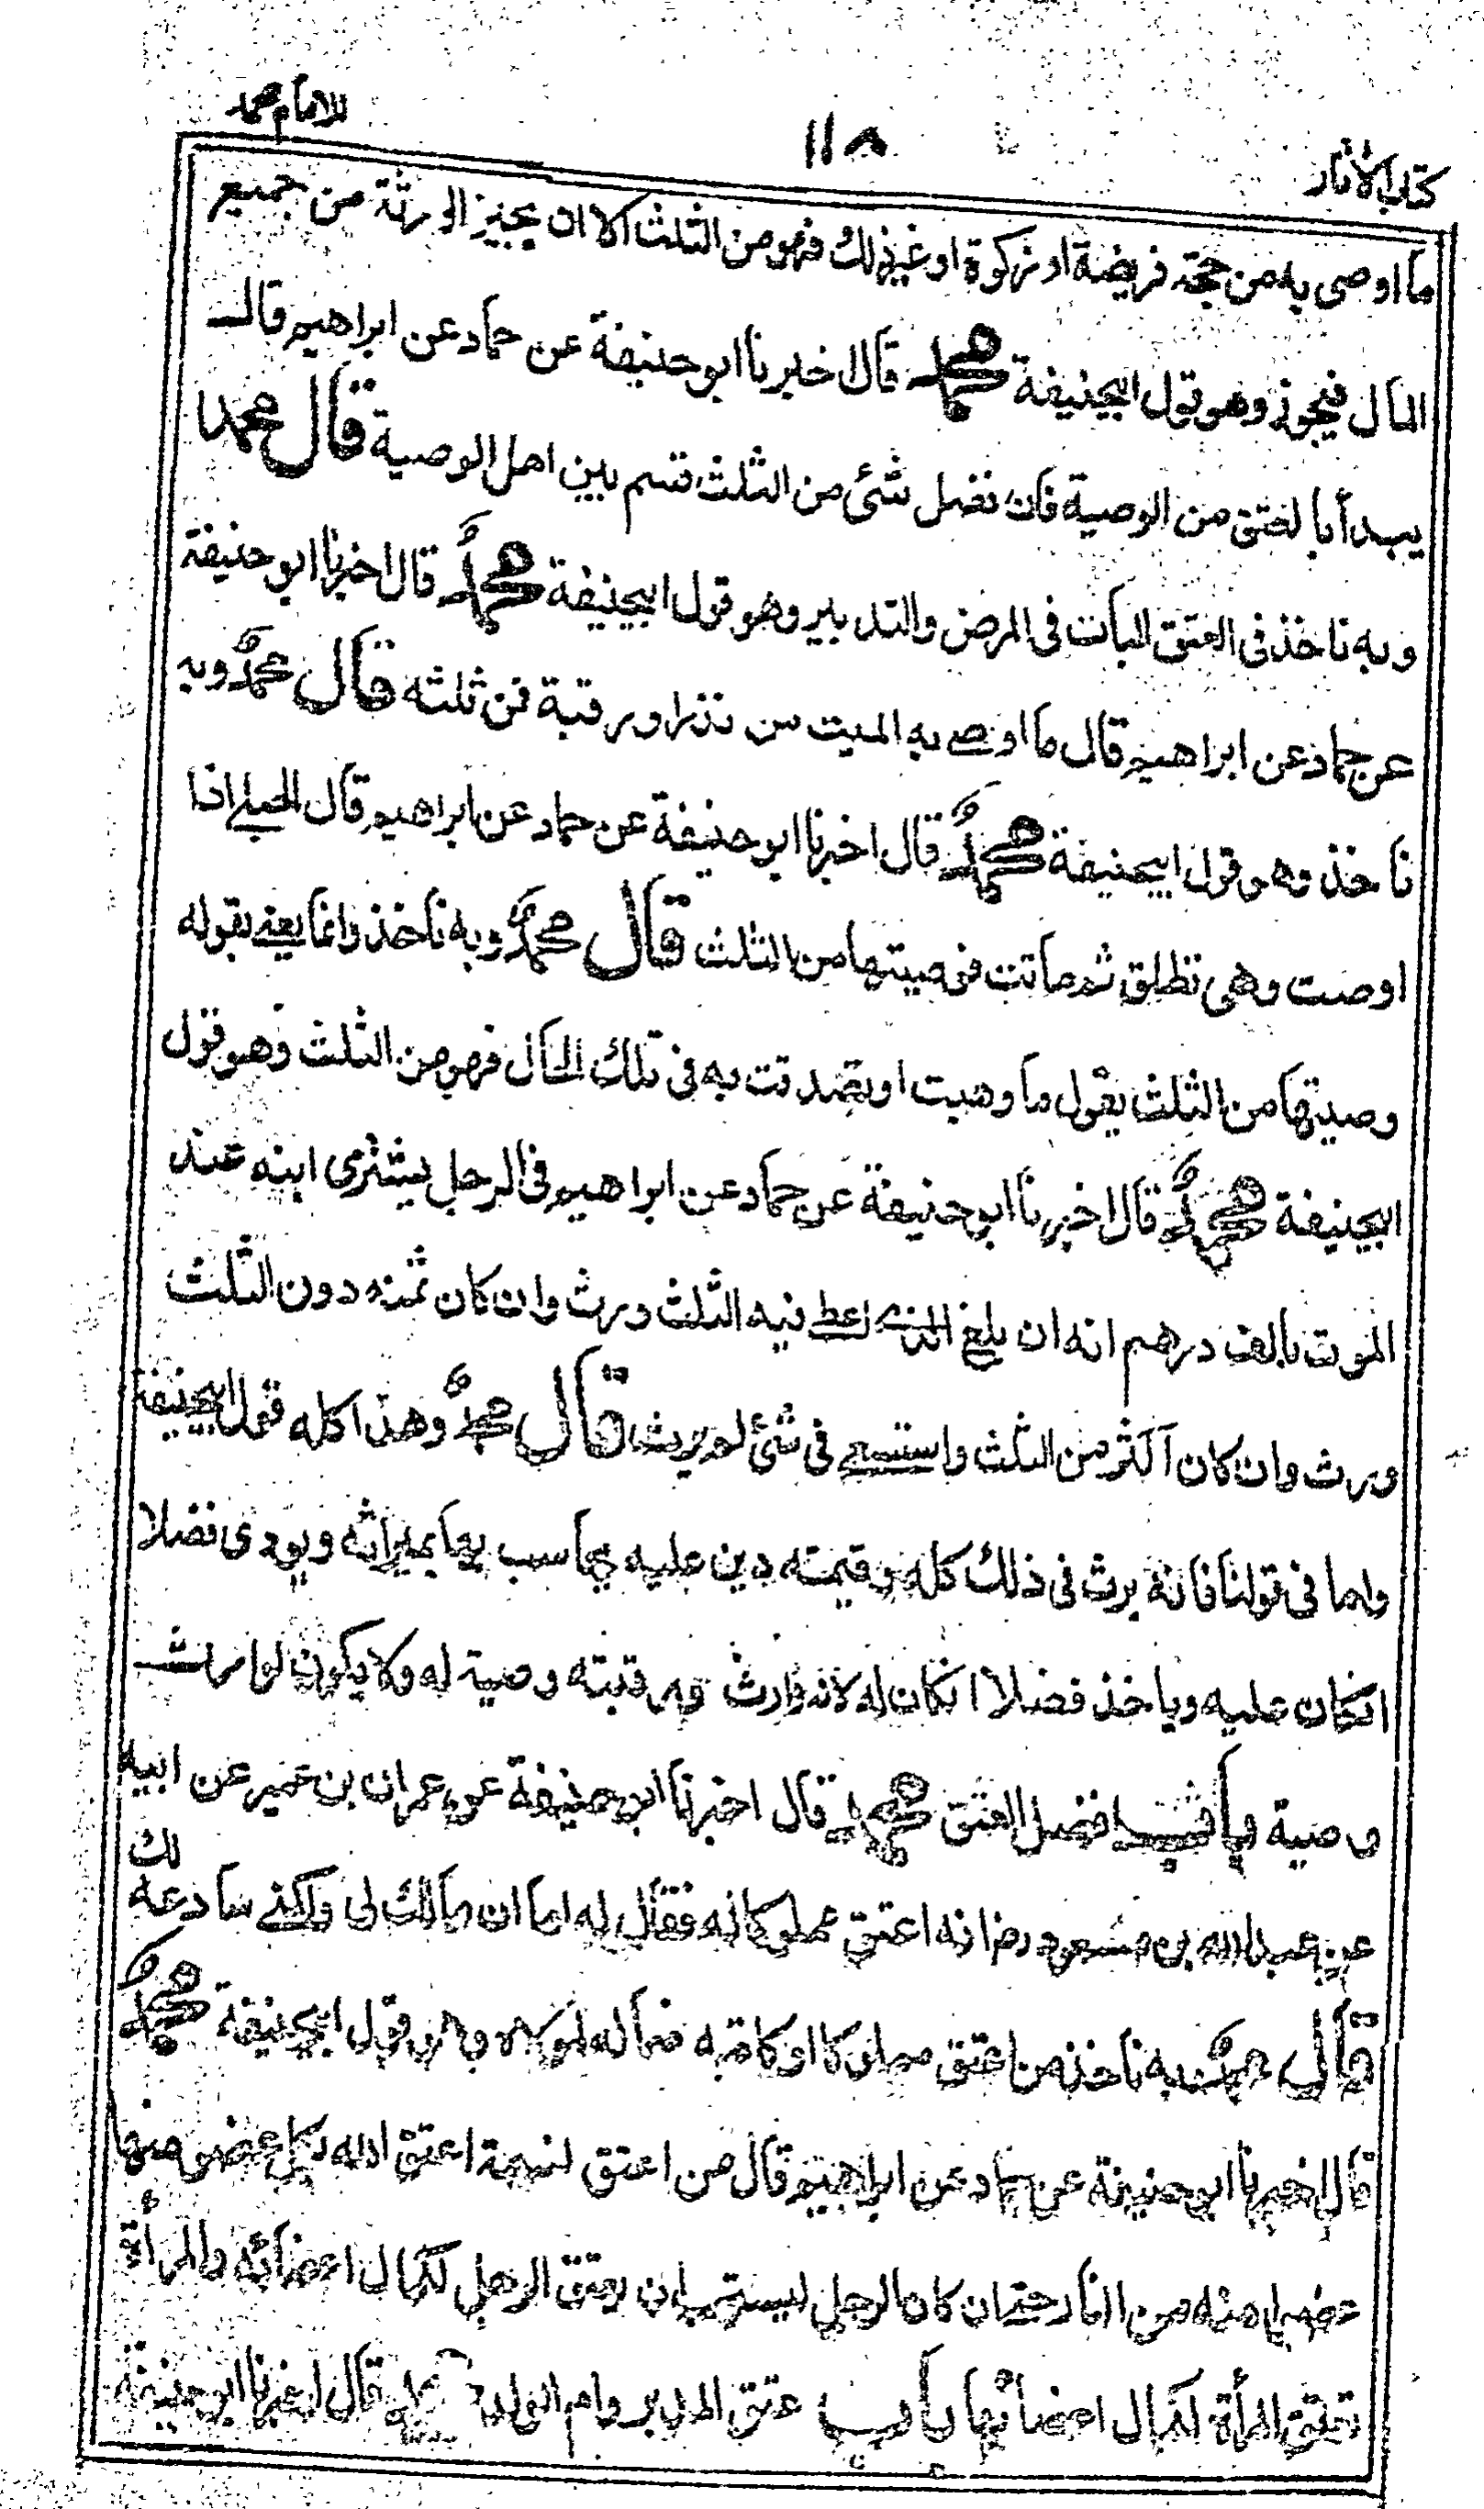 كتاب الآثار
١١٨
للامام محمد
ما اوصى به من حجة فريضة او زكوة او غير ذلك فهو من الثلث الا ان يجيز الورثة من جميع
المال فيجوز وهو قول ابيحنيفة محمد قال اخبرنا ابو حنيفة عن حماد عن ابراهيم قال
يبدأ بالعتق من الوصية فان فضل شئ من الثلث قسم بين اهل الوصية قال محمد
وبه ناخذ فى العتق البات فى المرض والتدبير وهو قول ابيحنيفة محمد قال اخبرنا ابو حنيفة
عن حماد عن ابراهيم قال ما اوصے به الميت من نذر او رقبة فمن ثلثه قال محمد وبه
ناخذ وهو قول ابيحنيفة محمد قال اخبرنا ابو حنيفة عن حماد عن ابراهيم قال الحبلے اذا
اوصت وهى تطلق ثم ماتت فوصيتها من الثلث قال محمد وبه ناخذ وانما يعنے بقوله
وصيتها من الثلث يقول ما وهبت او تصدقت به فى تلك الحال فهو من الثلث وهو قول
ابيحنيفة محمد قال اخبرنا ابو حنيفة عن حماد عن ابراهيم فى الرجل يشترى ابنه عند
الموت بالف درهم انه ان بلغ الذے اعطے فيه الثلث ورث وان كان ثمنه دون الثلث
ورث وان كان اكثر من الثلث واستسعے فى شئ لم يرث قال محمد وهذا كله قول ابيحنيفة
واما فى قولنا فانه يرث فى ذلك كله وقيمته دين عليه يحاسب بها بميراثه ويودى فضلا
انكان عليه وياخذ فضلا انكان له لانه وارث ورقبته وصية له ولا يكون لوارث
وصية باب فضل العتق محمد قال اخبرنا ابو حنيفة عن عمران بن عمير عن ابيه
عن عبد الله بن مسعود رض انه اعتق مملوكا له فقال له اما ان مالك لى ولكنے سادعه لك
قال محمد به ناخذ من اعتق مملوكا او كاتبه فماله لمولاه وهو قول ابيحنيفة محمد
قال اخبرنا ابو حنيفة عن حماد عن ابراهيم قال من اعتق نسمة اعتق الله بكل عضو منها
عضوا منه من النار حتى ان كان الرجل ليستحب ان يعتق الرجل لكمال اعضائه والمرأة
تعتق المرأة لكمال اعضائها باب عتق المدبر وام الولد محمد قال اخبرنا ابو حنيفة